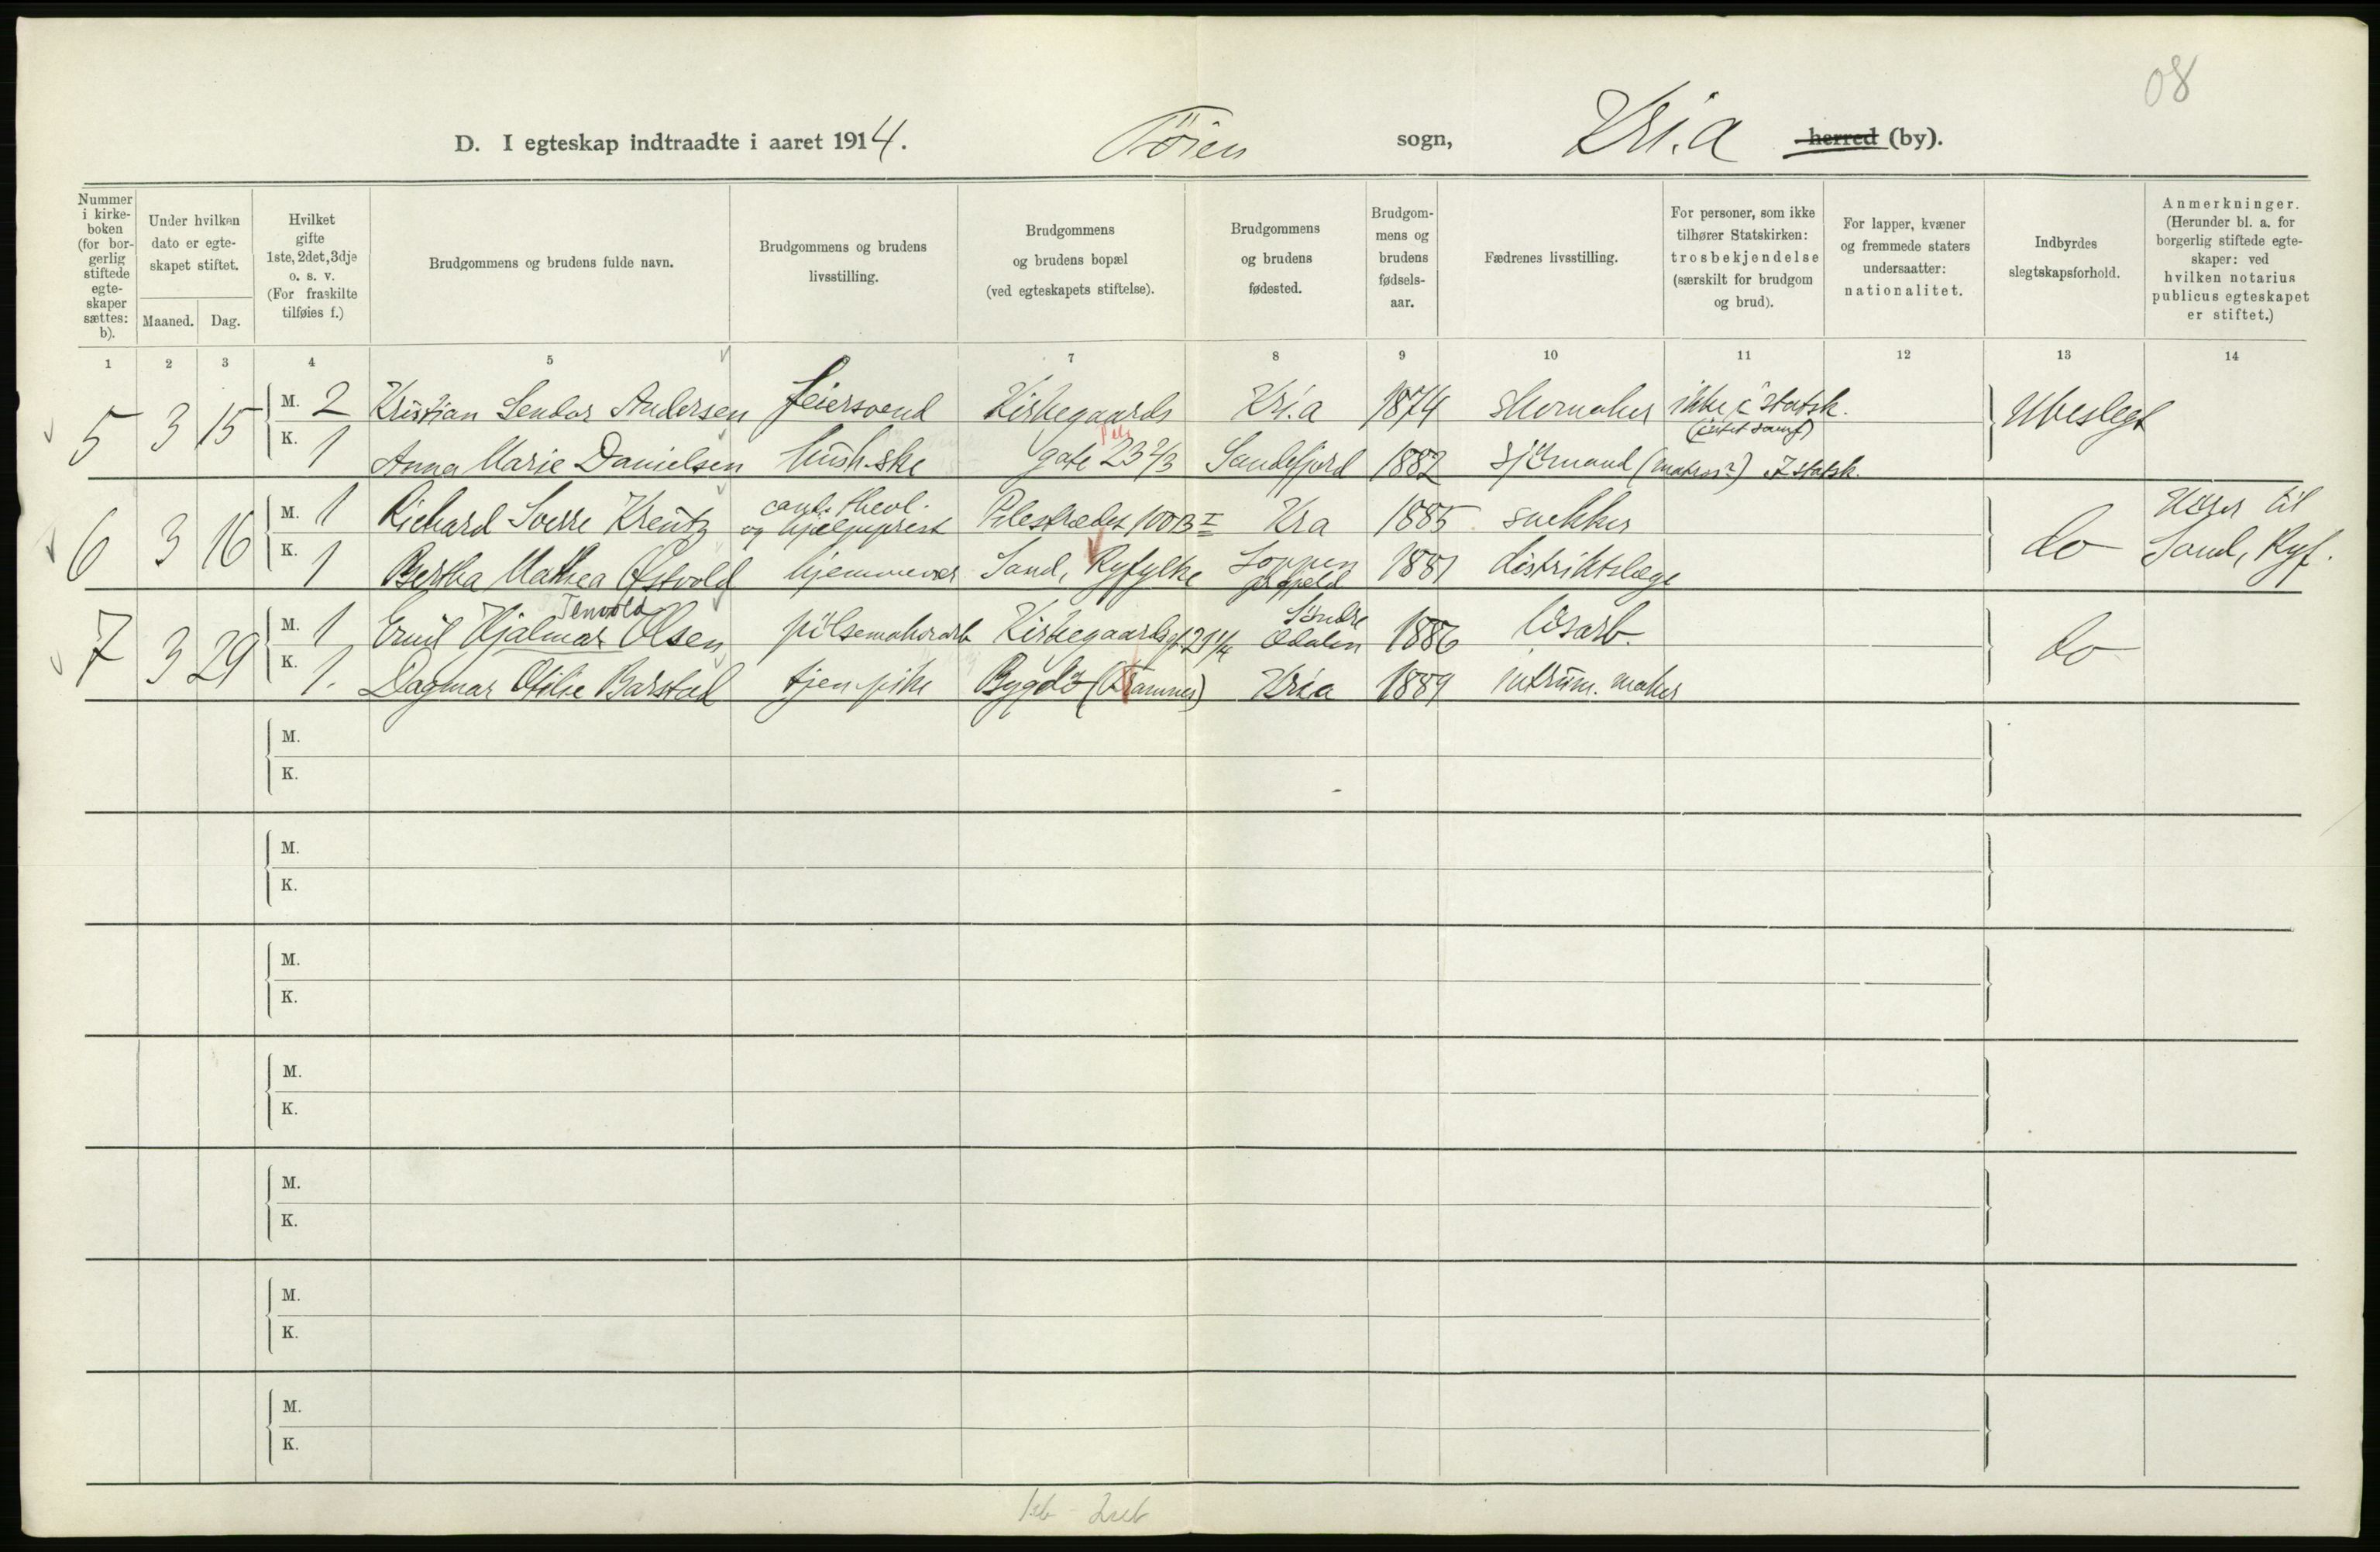 08
D. I egteskap indtraadte i aaret 1914. Tøien sogn, Kri.a herred (by).
Nummer i kirke-boken (for bor-gerlig stiftede egte-skaper sættes: b).
Under hvilken dato er egte-skapet stiftet.
Maaned. Dag.
Hvilket gifte 1ste, 2det, 3dje o. s. v. (For fraskilte tilføies f.)
Brudgommens og brudens fulde navn.
Brudgommens og brudens livsstilling.
Brudgommens og brudens bopæl (ved egteskapets stiftelse).
Brudgommens og brudens fødested.
Brudgom-mens og brudens fødsels-aar.
Fædrenes livsstilling.
For personer, som ikke tilhører Statskirken: trosbekjendelse (særskilt for brudgom og brud).
For lapper, kvæner og fremmede staters undersaatter: nationalitet.
Indbyrdes slegtskapsforhold.
Anmerkninger. (Herunder bl. a. for borgerlig stiftede egte-skaper: ved hvilken notarius publicus egteskapet er stiftet.)
1 2 3 4 5 7 8 9 10 11 12 13 14
5 3 15 M. 2 Kristian Sendor Andersen feiersvend Kirkegaards Kri.a 1874 skomaker ikke i statsk. (intet samf) Ubeslegt
K. 1 Anna Marie Danielsen hush.ske gate 23 2/3 Sandefjord 1882 sjömand (matros?) I statsk.
6 3 16 M. 1 Richard Sverre Kreutz cand. theol. og hjælpeprest Pilestrædet 100B I Kra 1885 snekker do Hører til
K. 1 Bertha Mathea Østvold hjemmevær Sand, Ryfylke Loppen prgjeld 1881 distriktslæge Sand, Ryf.
7 3 29 M. 1 Emil Hjalmar Tenvold Olsen pölsemakerarb Kirkegaardsgt 21 1/4 Söndre Odalen 1886 lösarb. do
K. 1. Dagmar Otilie Barstad tjen.pike Bygdö (Framnes) Kria 1889 instrum. maker
M.
K.
M.
K.
M.
K.
M.
K.
M.
K.
M.
K.
M.
K.